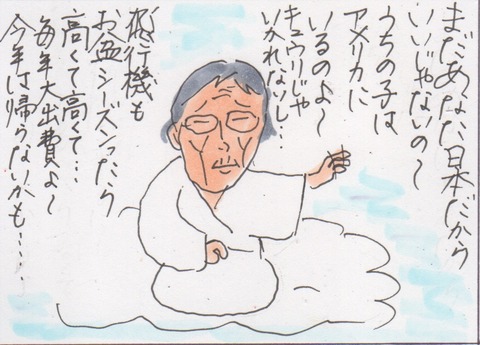 まだあなた日本だから
いいじゃないの〜
うちの子は
アメリカに
いるのよ〜
キュウリじゃ
いかれないし…
飛行機も
お盆シーズンったら
高くて高くて…
毎年大出費よ〜
今年は帰らないかも……